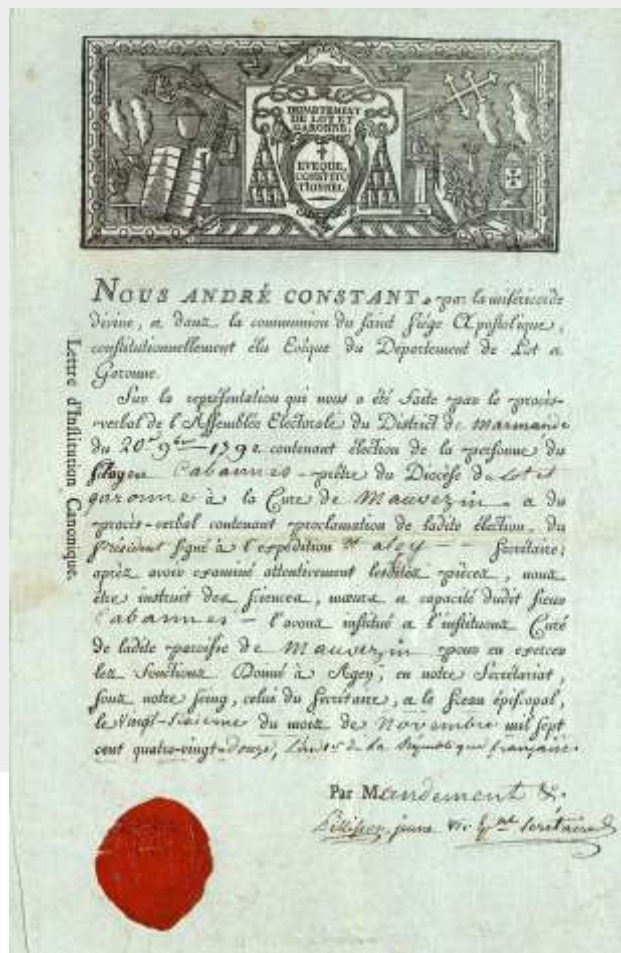 DEPARTEMENT
DE LOT ET
GARONNE.
EVEQUE,
CONSTITU
TIONNEL
NOUS ANDRÉ CONSTANT, par la miséricorde
divine, et dans la communion du saint siége Apostolique,
constitutionnellement élu Evêque du Département de Lot et
Garonne.
Sur la représentation qui nous a été faite par le procès-
verbal de l'Assemblée Electorale du District de Marmande
du 20e 9bre 1792 contenant élection de la personne du
Citoyen Cabannes prêtre du Diocèse de Lot et
garonne à la Cure de Mauvezin et du
procès-verbal contenant proclamation de ladite élection, du
président signé à l'expédition Secrétaire;
après avoir examiné attentivement lesdites pièces, nous
être instruit des sciences, mœurs et capacité dudit sieur
Cabannes l'avons institué et l'instituons Curé
de ladite paroisse de Mauvezin pour en exercer
les fonctions. Donné à Agen, en notre Secrétariat,
sous notre seing, celui du secrétaire, et le sceau épiscopal,
le vingt-sixieme du mois de Novembre mil sept
cent quatre-vingt-douze, L'an 1er de la République française.
Par Mandement &.
jeune secrétaire
Lettre d'Institution Canonique.